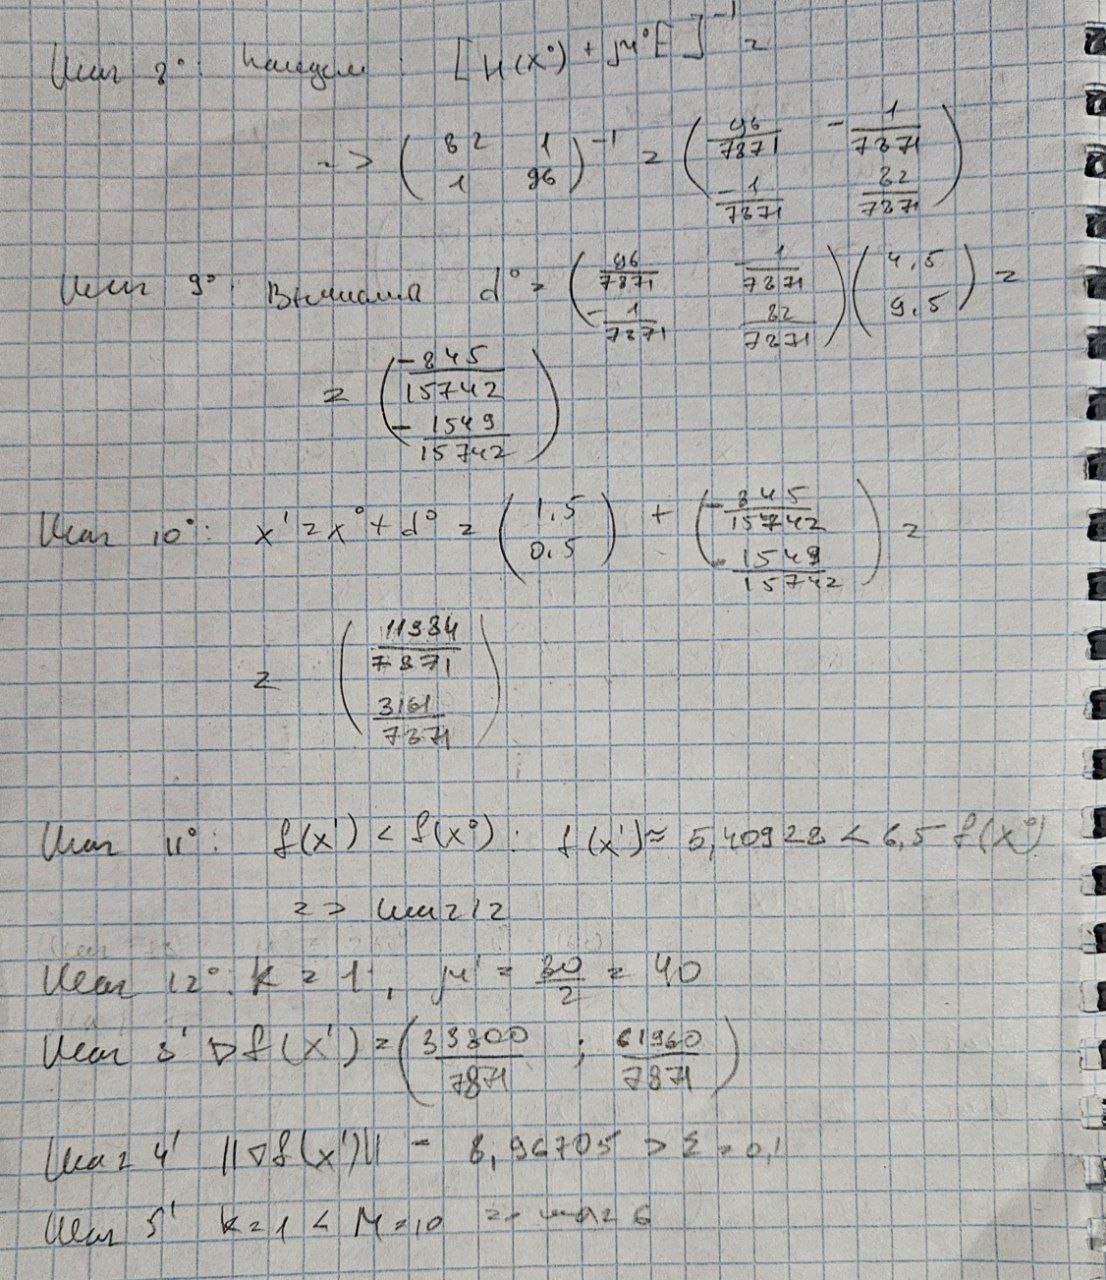 Шаг 8°: Найдем : [H(x°) + μ°E]⁻¹ =
=> ( 82 1 ; 1 96 )⁻¹ = ( 96/7871 -1/7871 ; -1/7871 82/7871 )
Шаг 9°: Вычислим d° = ( 96/7871 -1/7871 ; -1/7871 82/7871 ) ( 4,5 ; 9,5 ) =
= ( -845/15742 ; -1549/15742 )
Шаг 10°: x¹ = x° + d° = ( 1,5 ; 0,5 ) + ( -845/15742 ; -1549/15742 ) =
= ( 11384/7871 ; 3161/7871 )
Шаг 11°: f(x¹) < f(x°) : f(x¹) ≈ 5,40928 < 6,5 f(x°)
=> шаг 12
Шаг 12°: k = 1, μ¹ = 80/2 = 40
Шаг 3¹ ∇f(x¹) = ( 33800/7871 ; 61960/7871 )
Шаг 4¹ ||∇f(x¹)|| = 8,96705 > ε = 0,1
Шаг 5¹ k = 1 < M = 10 => шаг 6